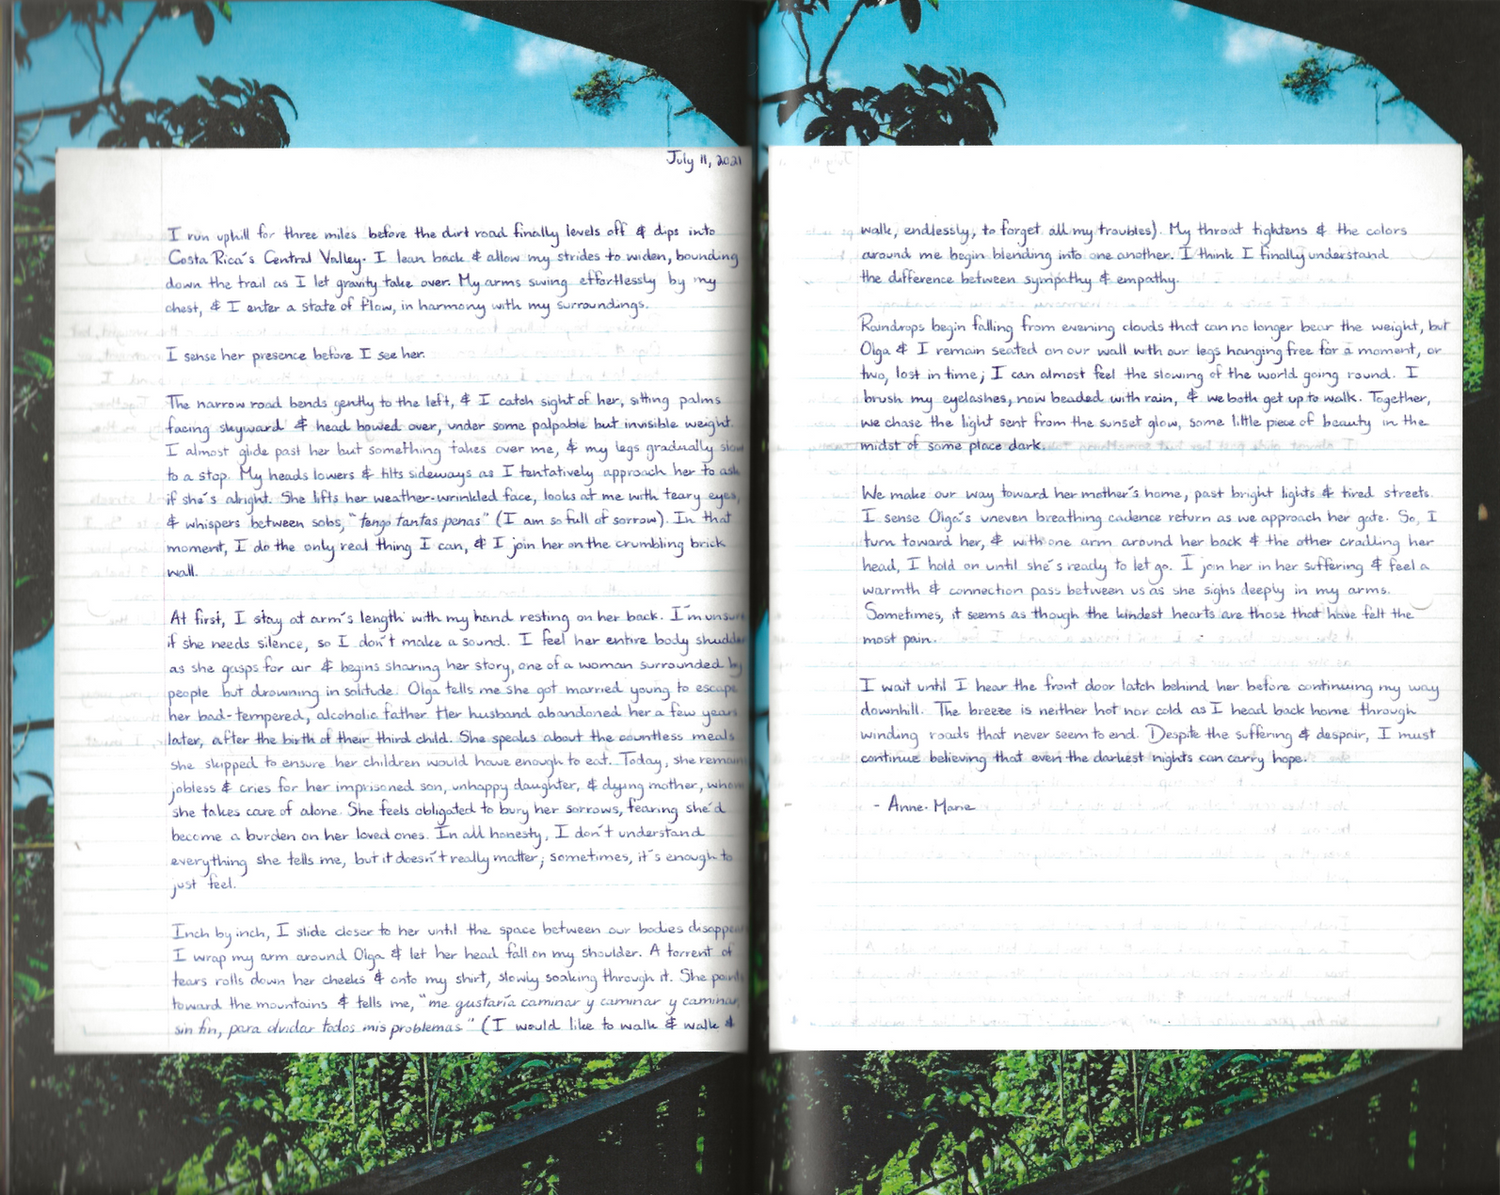 July 11, 2021
I run uphill for three miles before the dirt road finally levels off & dips into
Costa Rica's Central Valley. I lean back & allow my strides to widen, bounding
down the trail as I let gravity take over. My arms swing effortlessly by my
chest, & I enter a state of flow, in harmony with my surroundings.
I sense her presence before I see her.
The narrow road bends gently to the left, & I catch sight of her, sitting palms
facing skyward & head bowed over, under some palpable but invisible weight.
I almost glide past her but something takes over me, & my legs gradually slow
to a stop. My heads lowers & tilts sideways as I tentatively approach her to ask
if she's alright. She lifts her weather-wrinkled face, looks at me with teary eyes,
& whispers between sobs, "tengo tantas penas" (I am so full of sorrow). In that
moment, I do the only real thing I can, & I join her on the crumbling brick
wall.
At first, I stay at arm's length with my hand resting on her back. I'm unsure
if she needs silence, so I don't make a sound. I feel her entire body shudder
as she gasps for air & begins sharing her story, one of a woman surrounded by
people but drowning in solitude. Olga tells me she got married young to escape
her bad-tempered, alcoholic father. Her husband abandoned her a few years
later, after the birth of their third child. She speaks about the countless meals
she skipped to ensure her children would have enough to eat. Today, she remains
jobless & cries for her imprisoned son, unhappy daughter, & dying mother, whom
she takes care of alone. She feels obligated to bury her sorrows, fearing she'd
become a burden on her loved ones. In all honesty, I don't understand
everything she tells me, but it doesn't really matter; sometimes, it's enough to
just feel.
Inch by inch, I slide closer to her until the space between our bodies disappears
I wrap my arm around Olga & let her head fall on my shoulder. A torrent of
tears rolls down her cheeks & onto my shirt, slowly soaking through it. She points
toward the mountains & tells me, "me gustaría caminar y caminar y caminar,
sin fin, para olvidar todos mis problemas" (I would like to walk & walk &
walk, endlessly, to forget all my troubles). My throat tightens & the colors
around me begin blending into one another. I think I finally understand
the difference between sympathy & empathy.
Raindrops begin falling from evening clouds that can no longer bear the weight, but
Olga & I remain seated on our wall with our legs hanging free for a moment, or
two, lost in time; I can almost feel the slowing of the world going round. I
brush my eyelashes, now beaded with rain, & we both get up to walk. Together,
we chase the light sent from the sunset glow, some little piece of beauty in the
midst of some place dark.
We make our way toward her mother's home, past bright lights & tired streets.
I sense Olga's uneven breathing cadence return as we approach her gate. So, I
turn toward her, & with one arm around her back & the other cradling her
head, I hold on until she's ready to let go. I join her in her suffering & feel a
warmth & connection pass between us as she sighs deeply in my arms.
Sometimes, it seems as though the kindest hearts are those that have felt the
most pain.
I wait until I hear the front door latch behind her before continuing my way
downhill. The breeze is neither hot nor cold as I head back home through
winding roads that never seem to end. Despite the suffering & despair, I must
continue believing that even the darkest nights can carry hope.
- Anne-Marie